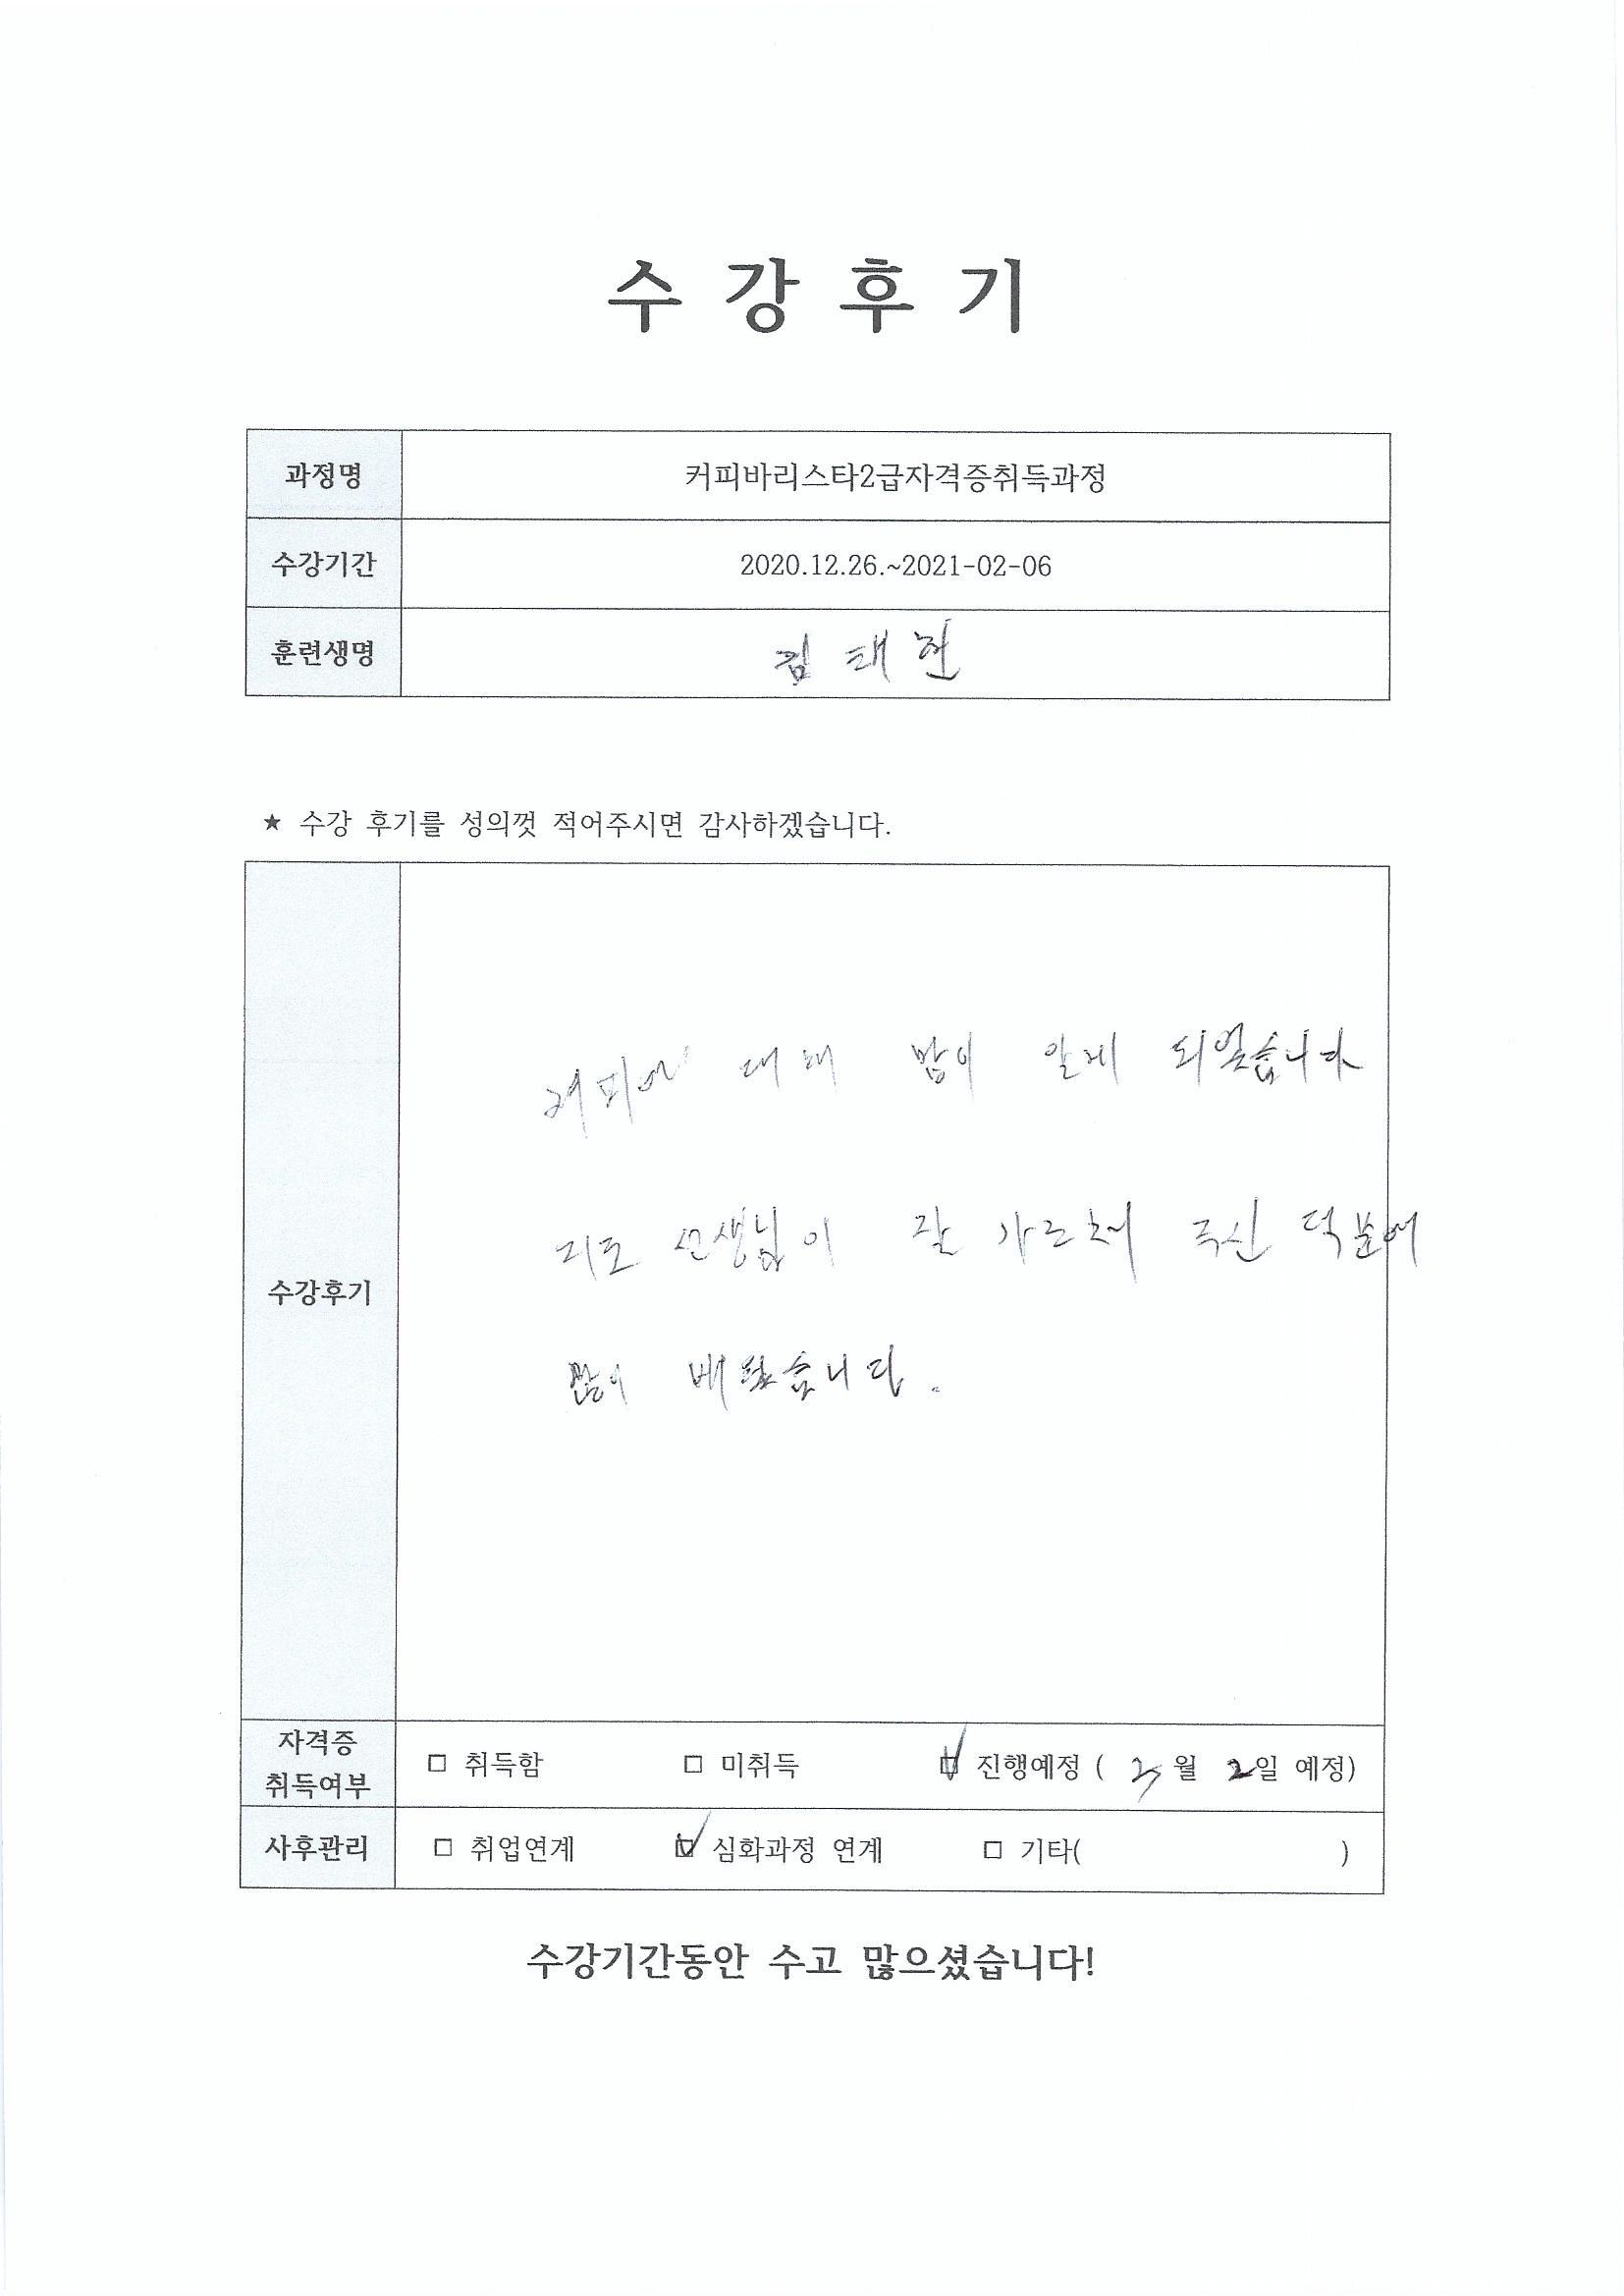 수 강 후 기
과정명 커피바리스타2급자격증취득과정
수강기간 2020.12.26.~2021-02-06
훈련생명 김태헌
★ 수강 후기를 성의껏 적어주시면 감사하겠습니다.
커피에 대해 많이 알게 되었습니다
지도 선생님이 잘 가르쳐 주신 덕분에
수강후기
많이 배웠습니다.
자격증
취득여부
□ 취득함 □ 미취득 ☑ 진행예정 ( 월 2일 예정)
사후관리 □ 취업연계 ☑ 심화과정 연계 □ 기타( )
수강기간동안 수고 많으셨습니다!